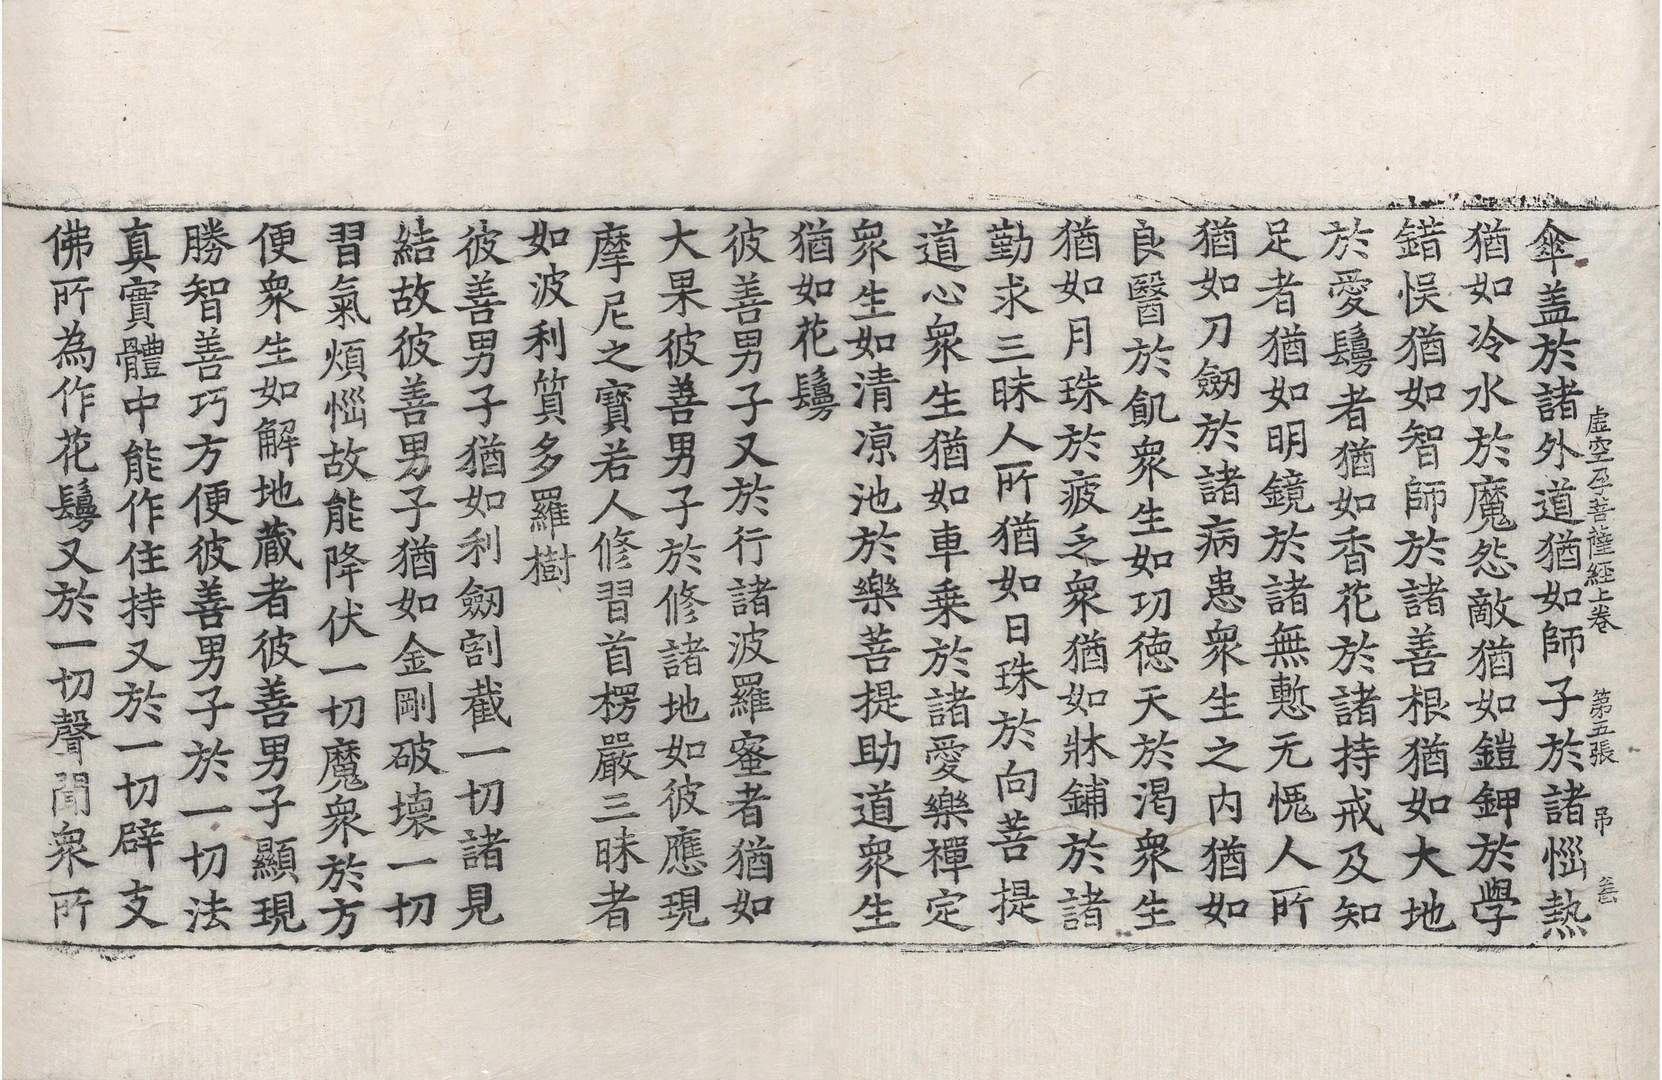 虛空孕菩薩經上卷 第五張 吊
傘盖於諸外道猶如師子於諸惱熱
猶如冷水於魔怨敵猶如鎧鉀於學
錯悮猶如智師於諸善根猶如大地
於愛鬘者猶如香花於諸持戒及知
足者猶如明鏡於諸無慙无愧人所
猶如刀劒於諸病患衆生之內猶如
良醫於飢衆生如功德天於渴衆生
猶如月珠於疲乏衆猶如牀鋪於諸
勤求三昧人所猶如日珠於向菩提
道心衆生猶如車乗於諸愛樂禪定
衆生如清凉池於樂菩提助道衆生
猶如花鬘
彼善男子又於行諸波羅蜜者猶如
大果彼善男子於修諸地如彼應現
摩尼之寶若人修習首楞嚴三昧者
如波利質多羅樹
彼善男子猶如利劒割截一切諸見
結故彼善男子猶如金剛破壞一切
習氣煩惱故能降伏一切魔衆於方
便衆生如解地蔵者彼善男子顯現
勝智善巧方便彼善男子於一切法
真實體中能作住持又於一切辟支
佛所為作花鬘又於一切聲聞衆所